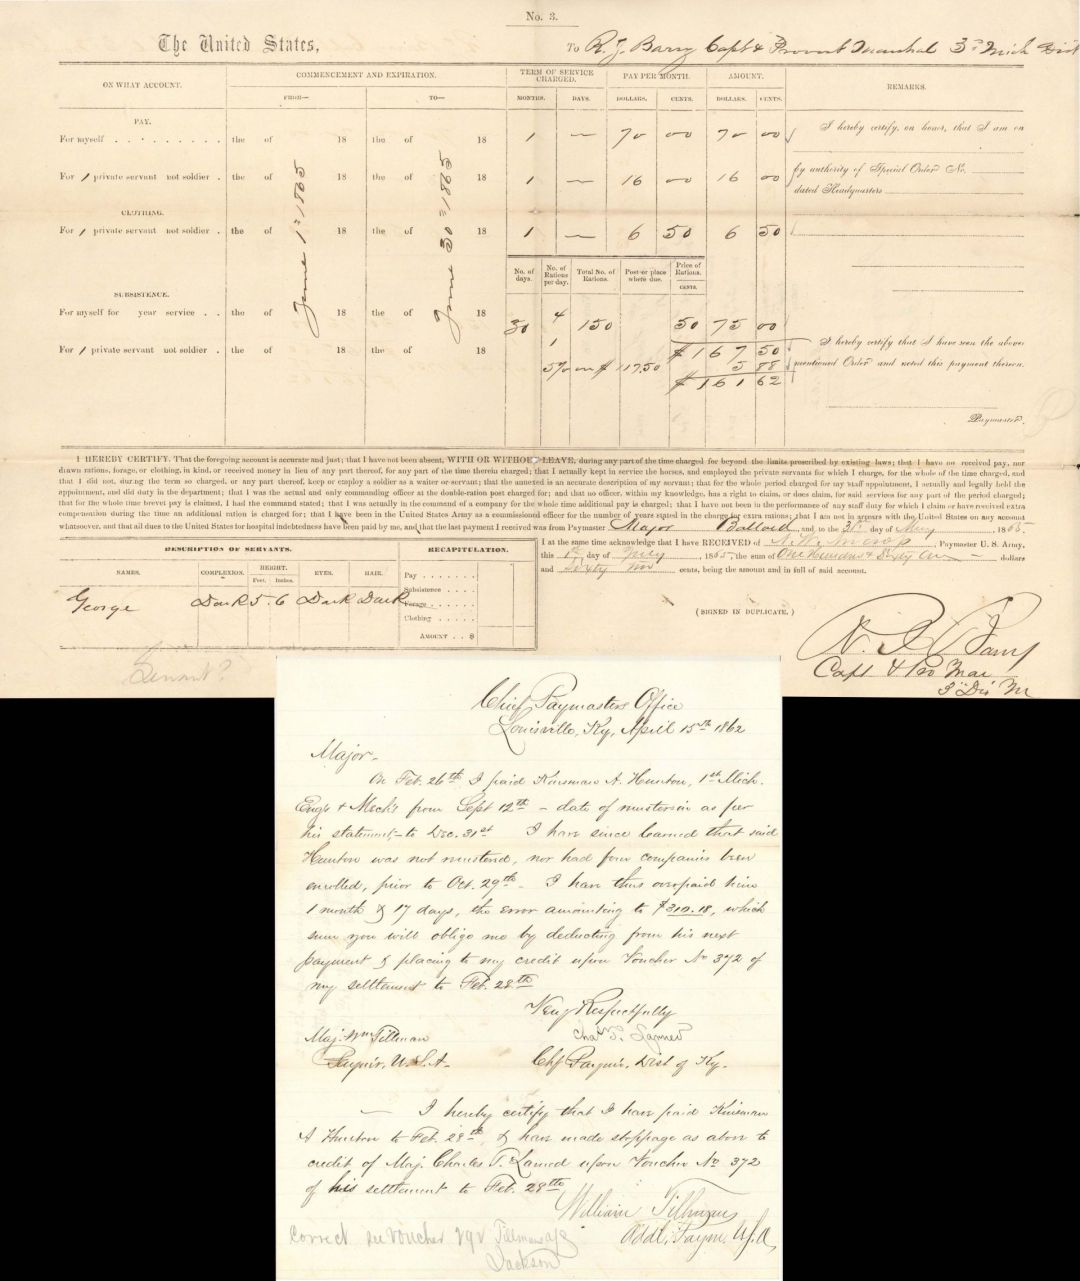 No. 3.
The United States,
To R. J. Barry Capt & Provost Marshal 3rd Mich Dist
ON WHAT ACCOUNT.
COMMENCEMENT AND EXPIRATION.
TERM OF SERVICE CHARGED.
PAY PER MONTH.
AMOUNT.
REMARKS.
FROM—
TO—
MONTHS.
DAYS.
DOLLARS.
CENTS.
DOLLARS.
CENTS.
PAY.
For myself . . . . . . . . . the of 18 the of 18 1 — 70 00 70 00
I hereby certify, on honor, that I am on
by authority of Special Order No.
dated Headquarters
For 1 private servant not soldier . the of 18 the of 18 1 — 16 00 16 00
CLOTHING.
For 1 private servant not soldier . the of 18 the of 18 1 — 6 50 6 50
June 1st 1865
June 30th 1865
No. of days.
No. of Rations per day.
Total No. of Rations.
Post or place where due.
Price of Rations.
CENTS.
SUBSISTENCE.
For myself for year service . . the of 18 the of 18 30 4 150 50 75 00
For 1 private servant not soldier . the of 18 the of 18 1 $167 50
5% on $117.50 5 88
$161 62
I hereby certify that I have seen the above
mentioned Order and noted this payment thereon.
Paymaster.
I HEREBY CERTIFY, That the foregoing account is accurate and just; that I have not been absent, WITH OR WITHOUT LEAVE, during any part of the time charged for beyond the limits prescribed by existing laws; that I have no received pay, nor
drawn rations, forage, or clothing, in kind, or received money in lieu of any part thereof, for any part of the time therein charged; that I actually kept in service the horses, and employed the private servants for which I charge, for the whole of the time charged, and
that I did not, during the term so charged, or any part thereof, keep or employ a soldier as a waiter or servant; that the annexed is an accurate description of my servant; that for the whole period charged for my staff appointment, I actually and legally held the
appointment, and did duty in the department; that I was the actual and only commanding officer at the double-ration post charged for; and that no officer, within my knowledge, has a right to claim, or does claim, for said services for any part of the period charged;
that for the whole time brevet pay is claimed, I had the command stated; that I was actually in the command of a company for the whole time additional pay is charged; that I have not been in the performance of any staff duty for which I claim or have received extra
compensation during the time an additional ration is charged for; that I have been in the United States Army as a commissioned officer for the number of years stated in the charge for extra rations; that I am not in arrears with the United States on any account
whatsoever, and that all dues to the United States for hospital indebtedness have been paid by me, and that the last payment I received was from Paymaster Major Ballard, and to the 31st day of May, 1865
I at the same time acknowledge that I have RECEIVED of Paymaster U. S. Army,
this 1st day of July, 1865, the sum of One Hundred & Sixty One — dollars
and Sixty two cents, being the amount and in full of said account.
DESCRIPTION OF SERVANTS.
RECAPITULATION.
NAMES.
COMPLEXION.
HEIGHT.
Feet.
Inches.
EYES.
HAIR.
George Dark 5. 6 Dark Dark
Pay . . . . .
Subsistence . . . . .
Forage . . . . .
Clothing . . . . .
AMOUNT . . $
(SIGNED IN DUPLICATE.)
R. J. Barry
Capt & Pro Mar
3rd Dis M
Servant?
Chief Paymasters Office
Louisville, Ky, April 15th 1862
Major—
On Feb. 26th I paid Kinsman A. Hunton, 1st Mich.
Eng's & Mech's from Sept 12th — date of mustersin as per
his statement,— to Dec. 31st I have since learned that said
Hunton was not mustered, nor had four companies been
enrolled, prior to Oct. 29th. I have thus overpaid him
1 month & 17 days, the error amounting to $310.18, which
sum you will oblige me by deducting from his next
payment & placing to my credit upon Voucher No 372 of
my settlement to Feb. 28th
Very Respectfully
Chas T. Larned
Maj. Wm Tillman
Paym'r, U.S.A.
Chf Paym'r, Dist of Ky.
— I hereby certify that I have paid Kinsman
A Hunton to Feb. 28th, & have made stoppage as above to
credit of Maj. Charles T. Larned upon Voucher No 372
of his settlement to Feb. 28th
William Tillman
Addl. Paym. U.S.A.
Correct see voucher 292 Tillman a/c
Jackson